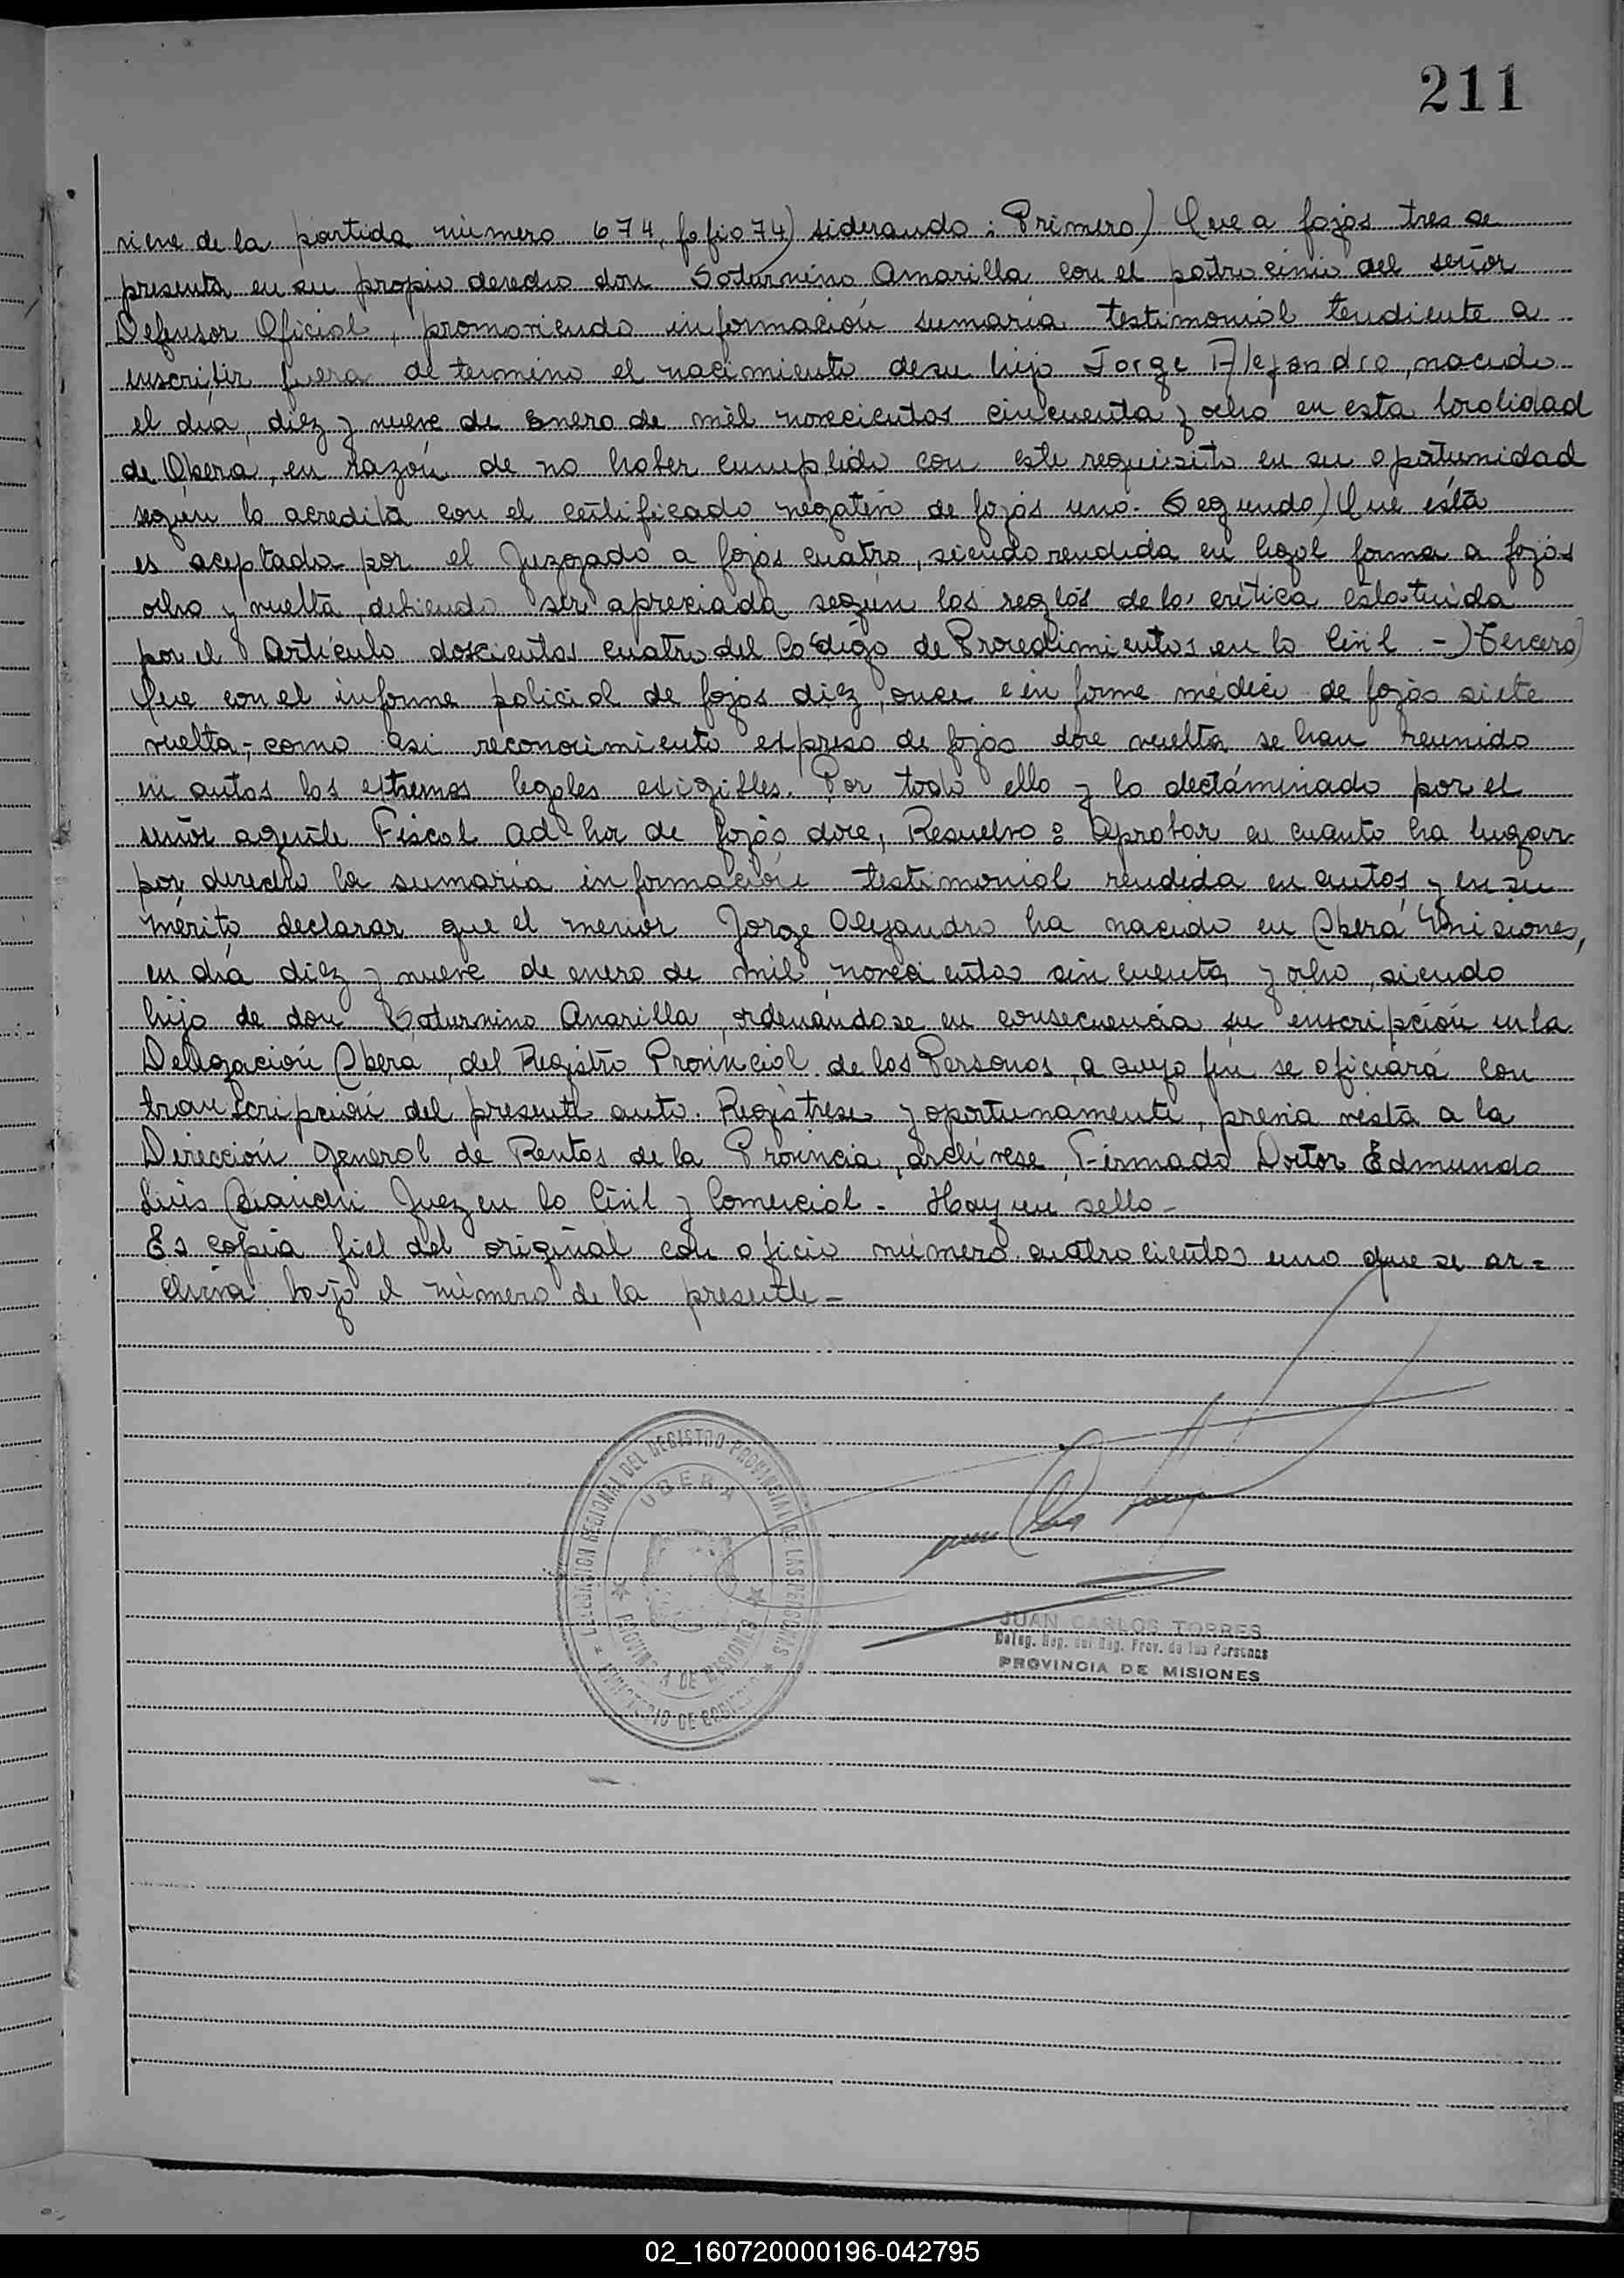 211
viene de la partida número 674, folio 74) siderando: Primero) Que a fojas tres se
presenta en su propio derecho don Saturnino Amarilla con el patrocinio del señor
Defensor Oficial, promoviendo información sumaria testimonial tendiente a
inscribir fuera de termino el nacimiento de su hijo Jorge Alejandro, nacido
el día, diez y nueve de Enero de mil novecientos cincuenta y ocho en esta localidad
de Oberá, en razón de no haber cumplido con este requisito en su oportunidad
según lo acredita con el certificado negativo de fojas uno. Segundo) Que ésta
es aceptada por el Juzgado a fojas cuatro, siendo rendida en legal forma a fojas
ocho y vuelta, debiendo ser apreciada según las reglas de la crítica estatuida
por el Artículo doscientos cuatro del Código de Procedimientos en lo Civil.-) Tercero)
Que con el informe policial de fojas diez, once e informe médico de fojas siete
vuelta,- como asi reconocimiento expreso de fojas doce vuelta se han reunido
en autos los extremos legales exigibles. Por todo ello y lo dectáminado por el
señor agente Fiscal ad-hoc de fojas doce, Resuelvo: Aprobar en cuanto ha lugar
por derecho la sumaria información testimonial rendida en autos, y en su
mérito declarar que el menor Jorge Alejandro ha nacido en Oberá Misiones,
en día diez y nueve de enero de mil novecientos cincuenta y ocho, siendo
hijo de don Saturnino Amarilla, ordenándose en consecuencia su inscripción en la
Delegación Oberá, del Registro Provincial de las Personas, a cuyo fin se oficiará con
transcripción del presente auto. Regístrese y oportunamente, previa vista a la
Dirección General de Rentas de la Provincia, archívese. Firmado Doctor Edmundo
Luis Bianchi Juez en lo Civil y Comercial.- Hay un sello-
Es copia fiel del original con oficio número cuatrocientos uno que se ar=
chiva bajo el número de la presente-
DELEGACION REGIONAL DEL REGISTRO PROVINCIAL DE LAS PERSONAS
OBERA
PROVINCIA DE MISIONES
MINISTERIO DE GOBIERNO
JUAN CARLOS TORRES
Deleg. Reg. del Reg. Prov. de las Personas
PROVINCIA DE MISIONES
02_160720000196-042795